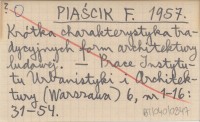 PIAŚCIK F. 1957.
Krótka charakterystyka tra-
dycyjnych form architektury
ludowej. — Prace Instytu-
tu Urbanistyki i Architek-
tury (Warszawa) 6, nr 1-16:
31-54.